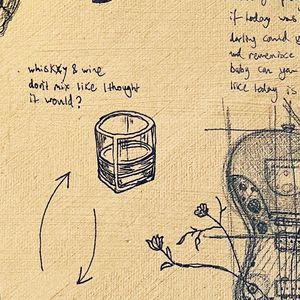 whiskxy & wine
don't mix like I thought
it would?
if today was
darling could
and reminisce
baby can you
like today is